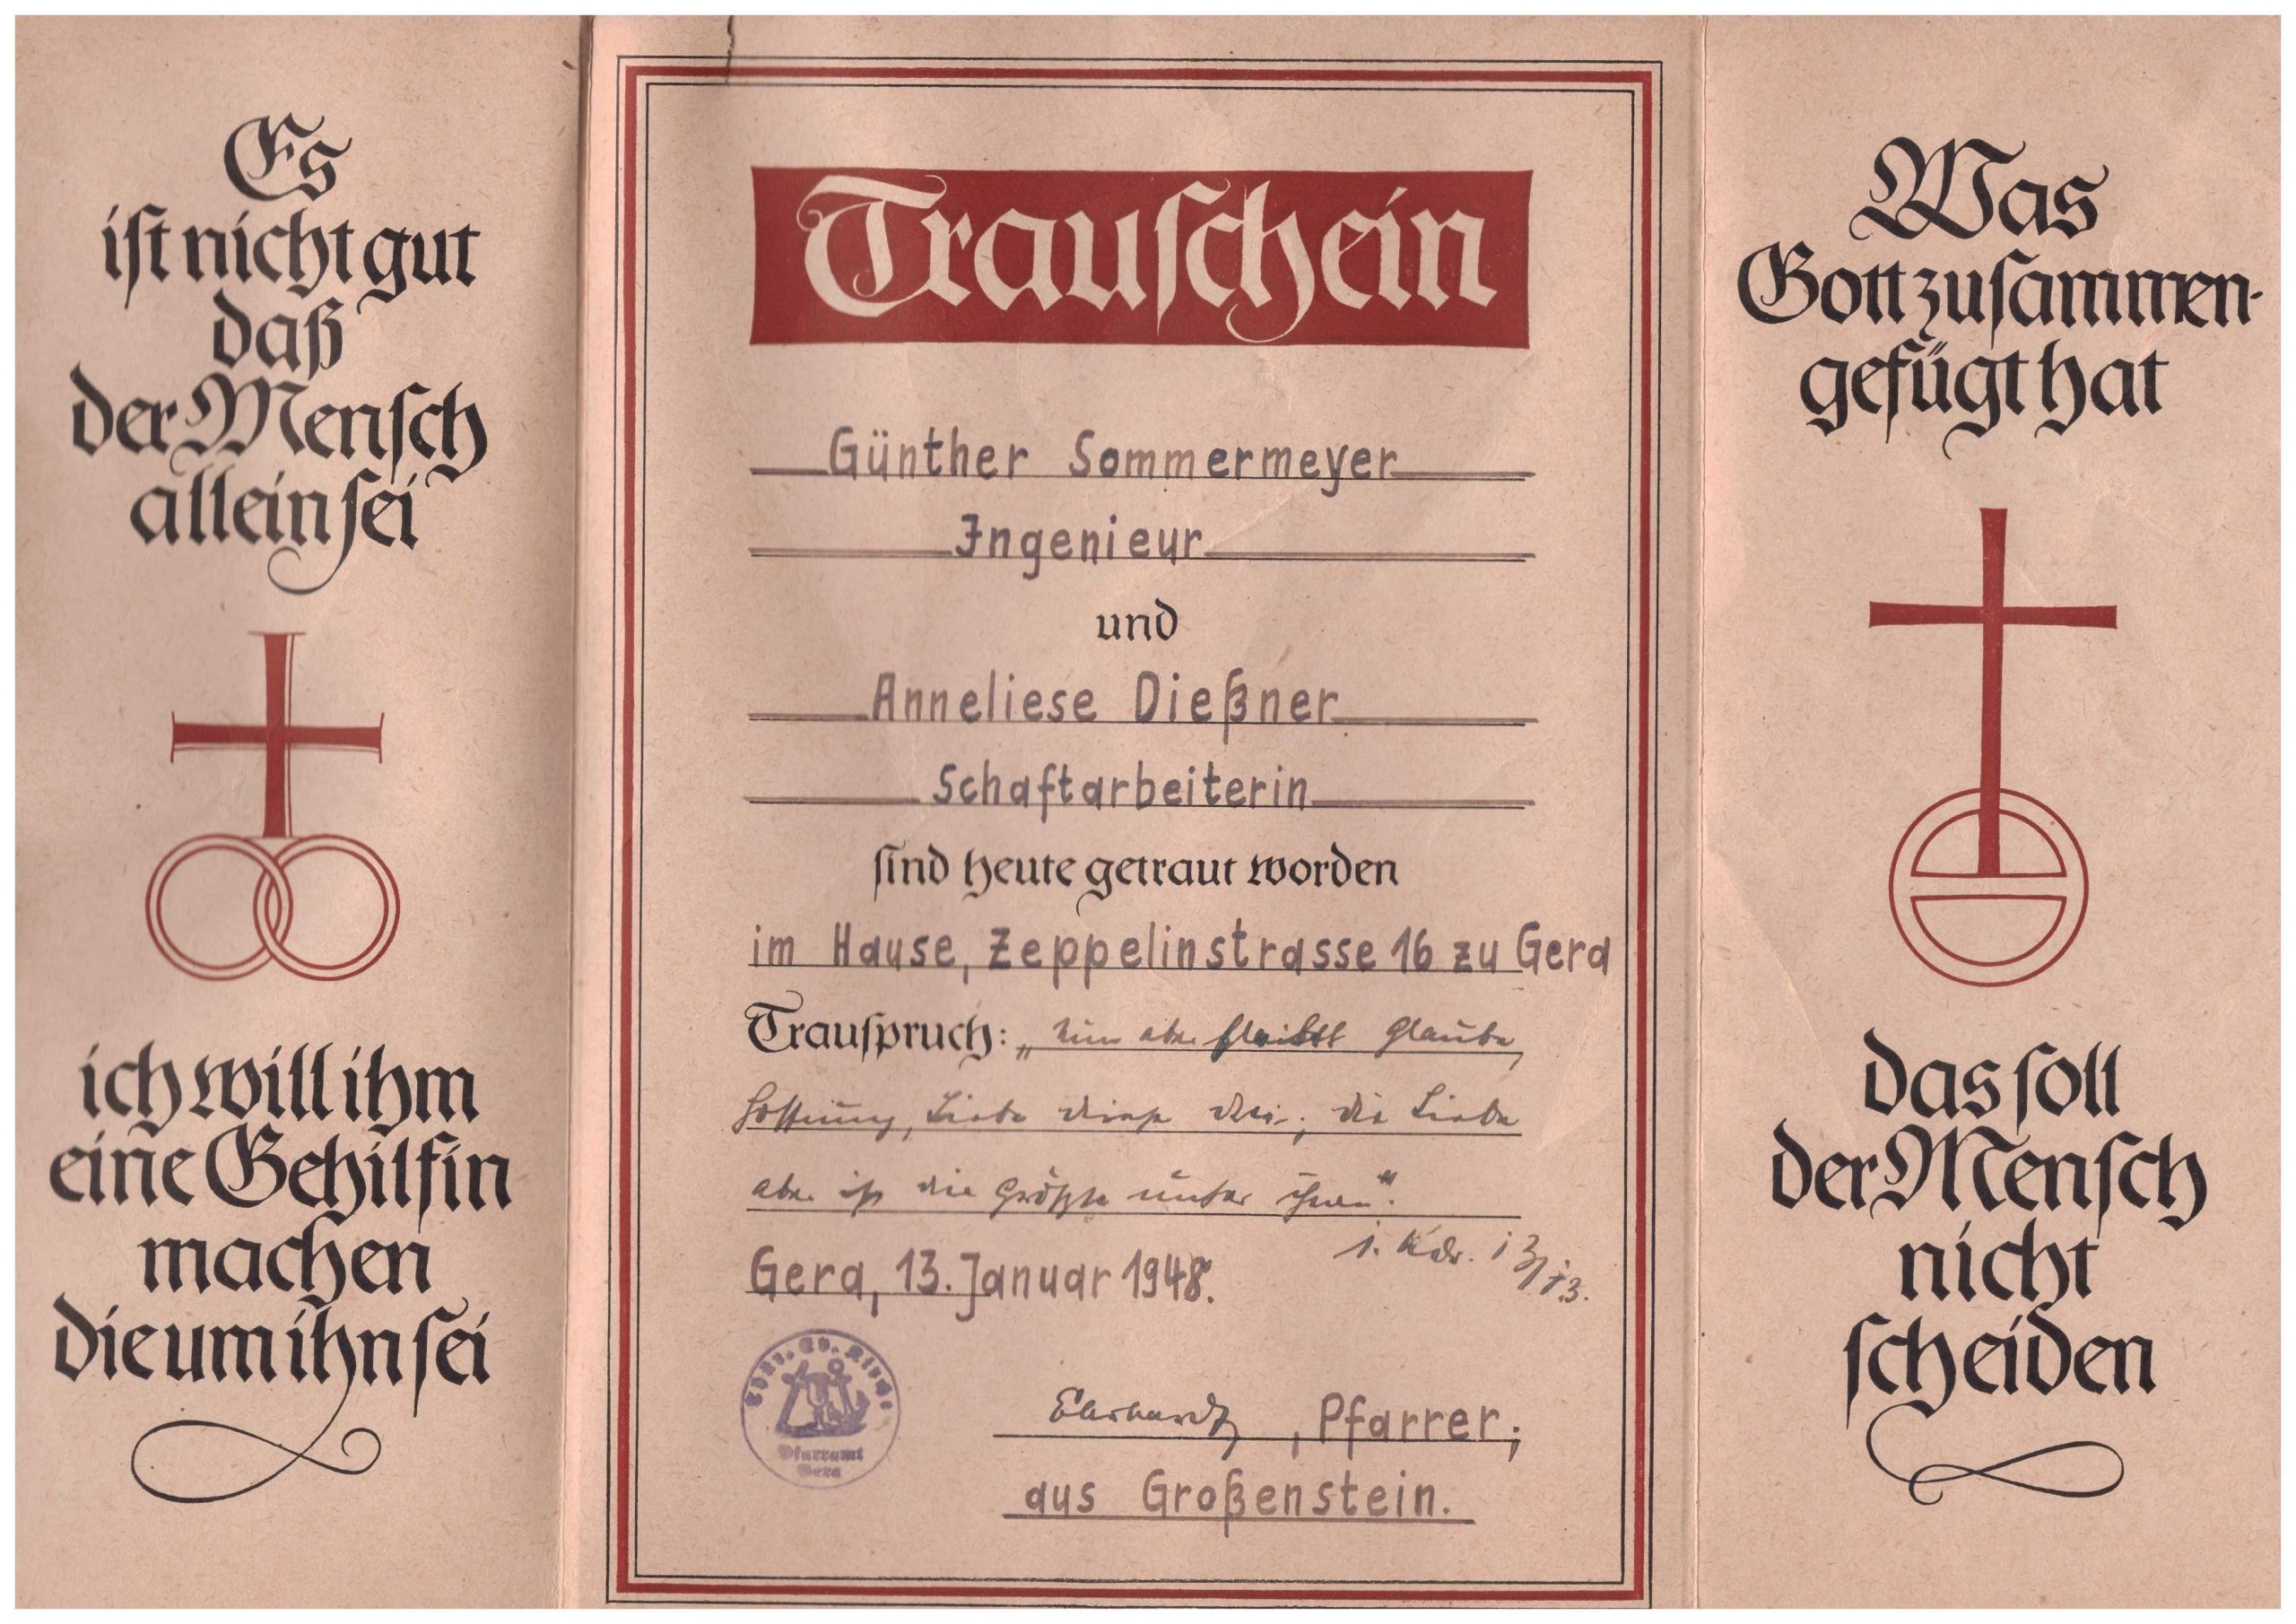 Es
ist nicht gut
daß
der Mensch
allein sei
ich will ihm
eine Gehilfin
machen
die um ihn sei
Trauschein
Günther Sommermeyer
Ingenieur
und
Anneliese Dießner
Schaftarbeiterin
sind heute getraut worden
im Hause, Zeppelinstrasse 16 zu Gera
Trauspruch: „Nun aber bleibt Glaube,
Hoffnung, Liebe diese drei; die Liebe
aber ist die Größte unter ihnen“.
1. Kor. 13,13.
Gera, 13. Januar 1948.
Thür. Ev. Kirche
Pfarramt
Gera
Eberhardt, Pfarrer,
aus Großenstein.
Was
Gott zusammen-
gefügt hat
das soll
der Mensch
nicht
scheiden